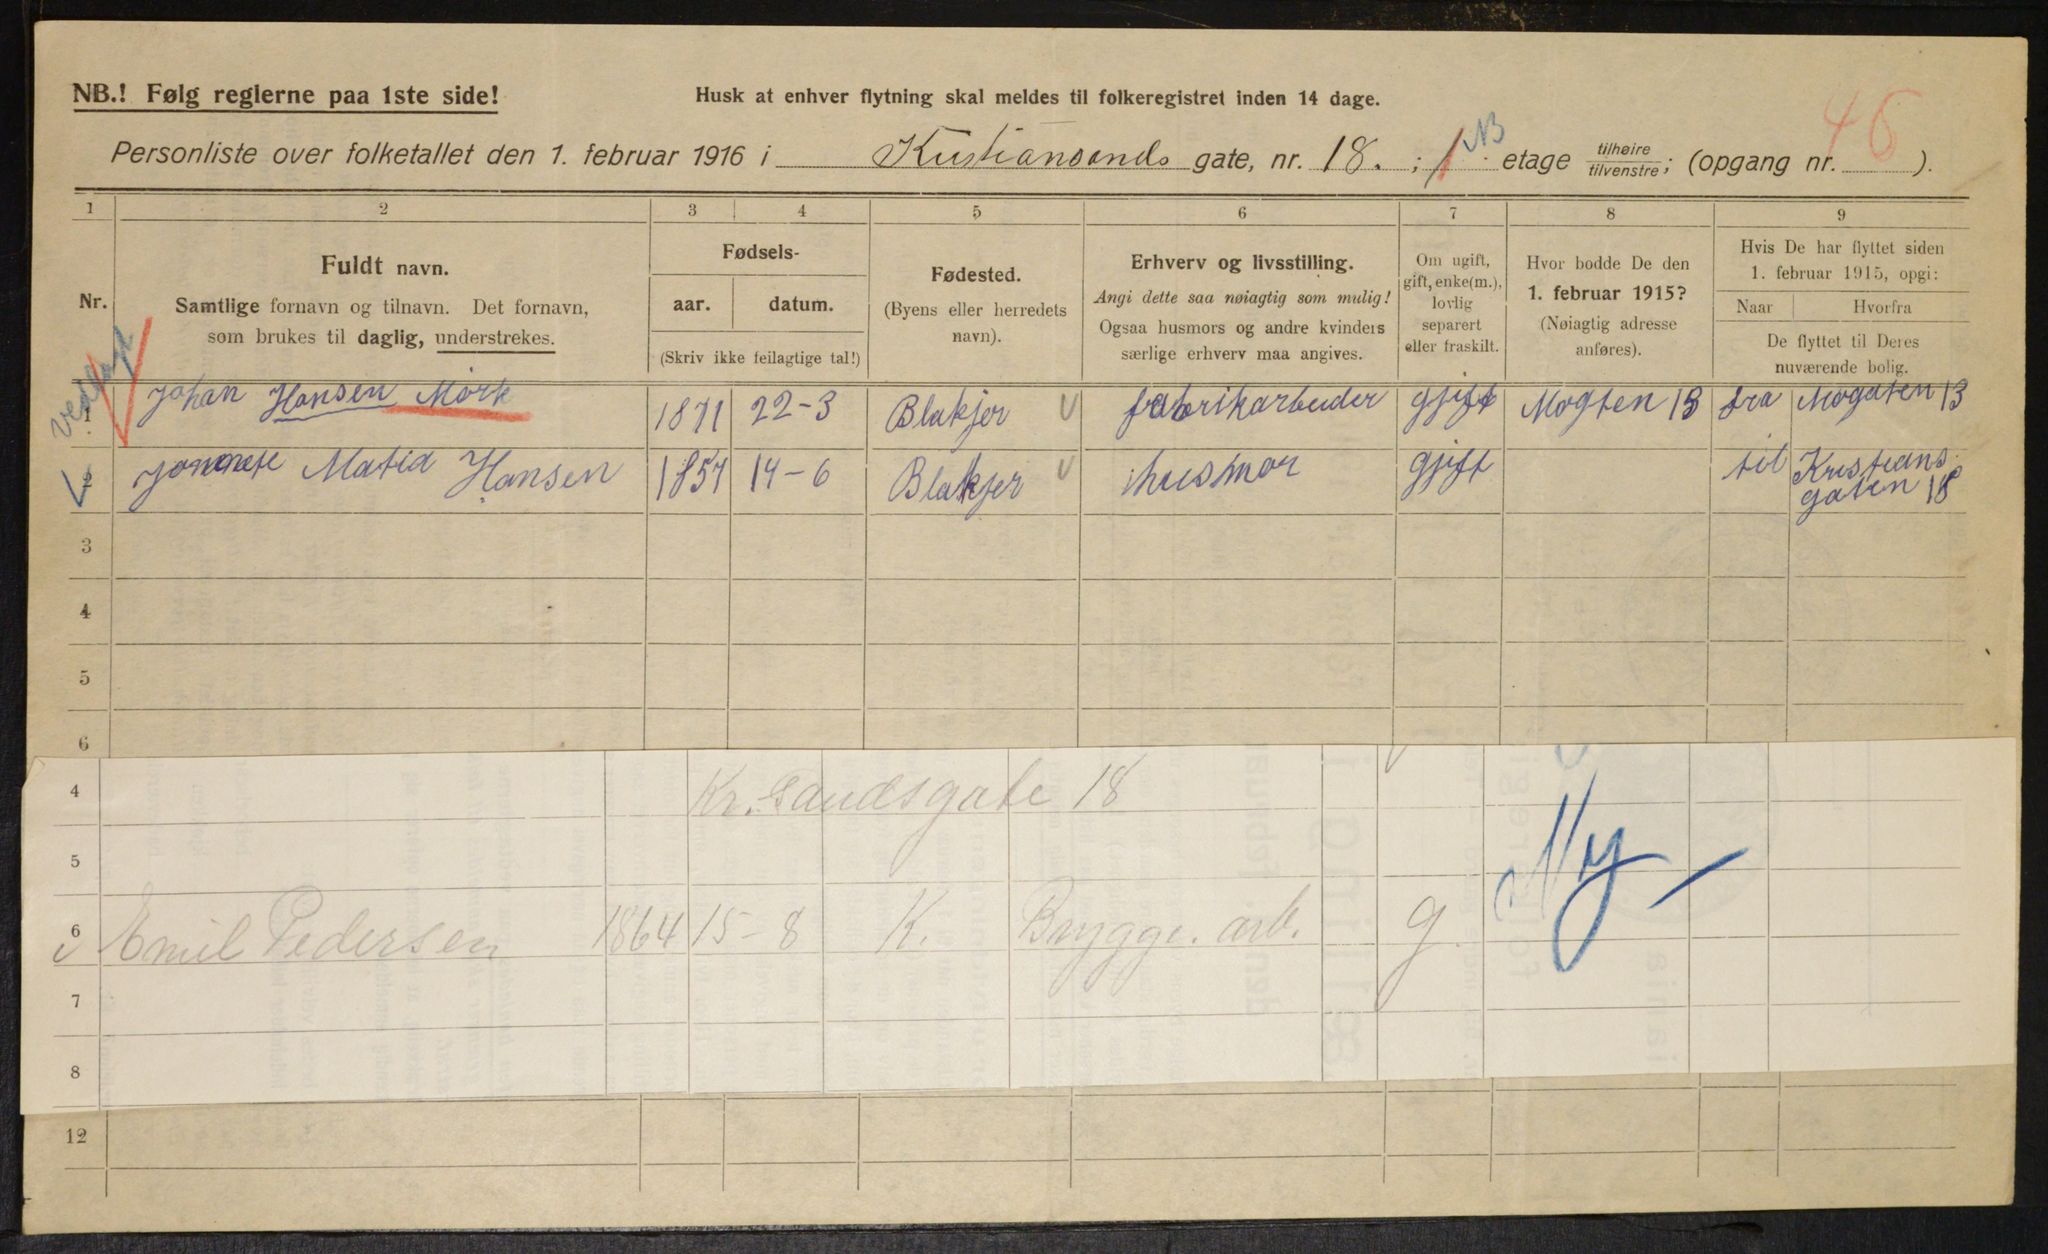 NB.! Følg reglerne paa 1ste side!
Husk at enhver flytning skal meldes til folkeregistret inden 14 dage.
46
Personliste over folketallet den 1. februar 1916 i Kristiansands gate, nr. 18. ; 1 NB etage tilhøire/tilvenstre; (opgang nr. ).
1 2 3 4 5 6 7 8 9
Nr.
Fuldt navn.
Samtlige fornavn og tilnavn. Det fornavn,
som brukes til daglig, understrekes.
Fødsels-
aar. datum.
(Skriv ikke feilagtige tal!)
Fødested.
(Byens eller herredets
navn).
Erhverv og livsstilling.
Angi dette saa nøiagtig som mulig!
Ogsaa husmors og andre kvinders
særlige erhverv maa angives.
Om ugift,
gift, enke(m.),
lovlig
separert
eller fraskilt.
Hvor bodde De den
1. februar 1915?
(Nøiagtig adresse
anføres).
Hvis De har flyttet siden
1. februar 1915, opgi:
Naar Hvorfra
De flyttet til Deres
nuværende bolig.
1 Johan Hansen Mörk 1871 22-3 Blakjer fabrikarbeider gjift Mogten 13 fra Mogaten 13
2 Matia Hansen 1857 14-6 Blakjer husmor gjift til Kristians
gaten 18
3
4
5
6
4 Kr. Sandsgate 18
5
6 Emil Pedersen 1864 15-8 K. Brygge. arb. g. Ny
7
8
12